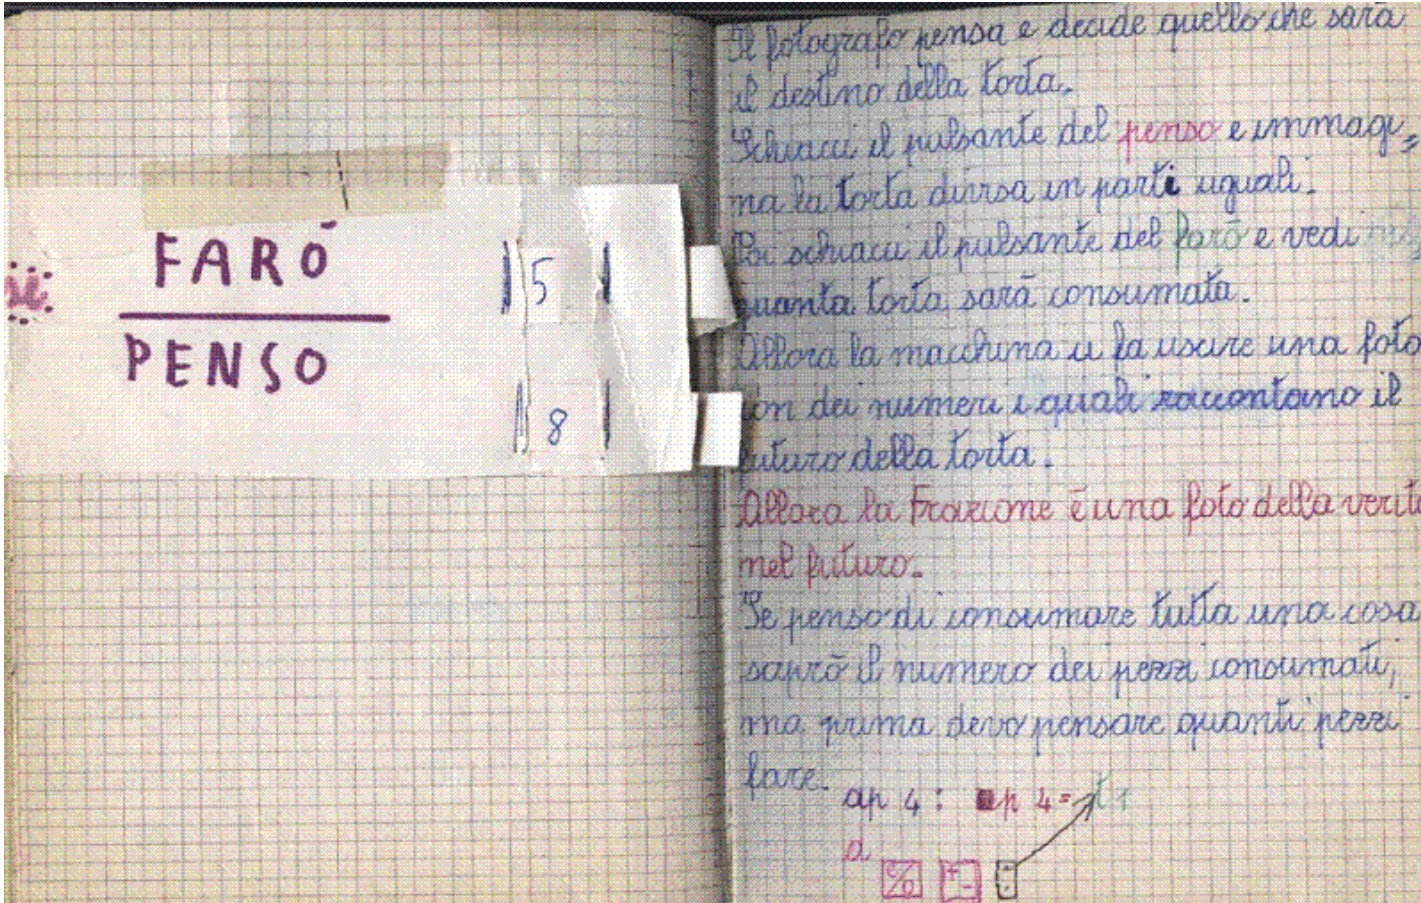 FARÓ
PENSO
sè
5
8
Il fotografo pensa e decide quello che sarà
il destino della torta.
Schiacci il pulsante del penso e immagi=
na la torta divisa in parti uguali.
Poi schiacci il pulsante del farò e vedi
quanta torta sarà consumata.
Allora la macchina ci fa uscire una foto
con dei numeri i quali raccontano il
futuro della torta.
Allora la Frazione è una foto della verità
nel futuro.
Se penso di consumare tutta una cosa
saprò il numero dei pezzi consumati,
ma prima devo pensare quanti pezzi
fare.
ap 4 : ap 4 = t 1
a